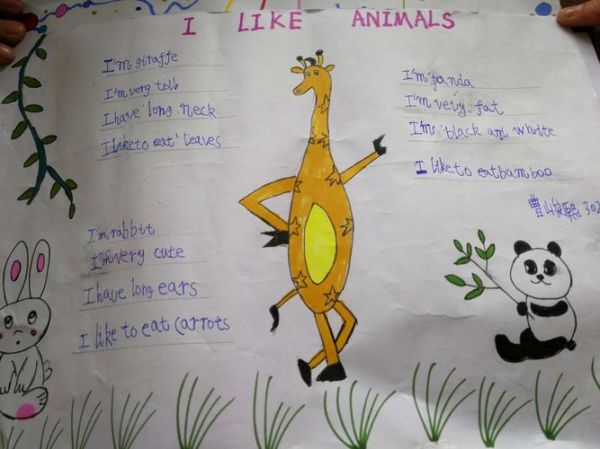 I LIKE ANIMALS
I'm giraffe
I'm very tolb
I have long neck
I like to eat leaves
I'm rabbit
I'm very cute
I have long ears
I like to eat carrots
I'm panda
I'm very fat
I'm black and white
I like to eat bamboo
302